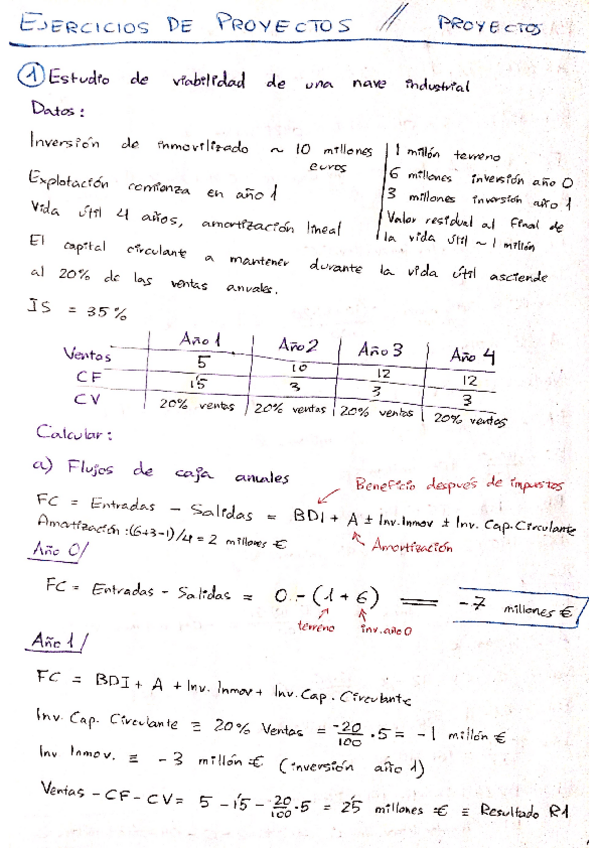 EJERCICIOS DE PROYECTOS // PROYECTOS
① Estudio de viabilidad de una nave industrial
Datos:
Inversión de inmovilizado ~ 10 millones euros
1 millón terreno
6 millones inversión año 0
3 millones inversión año 1
Valor residual al final de la vida útil ~ 1 millón
Explotación comienza en año 1
Vida útil 4 años, amortización lineal
El capital circulante a mantener durante la vida útil asciende
al 20% de las ventas anuales.
IS = 35%
Año 1 | Año 2 | Año 3 | Año 4
Ventas 5 | 10 | 12 | 12
CF 1'5 | 3 | 3 | 3
CV 20% ventas | 20% ventas | 20% ventas | 20% ventas
Calcular:
a) Flujos de caja anuales
Beneficio después de impuestos
FC = Entradas - Salidas = BDI + A ± Inv. Inmov ± Inv. Cap. Circulante
Amortización: (6+3-1)/4 = 2 millones €
Amortización
Año 0/
FC = Entradas - Salidas = 0 - (1 + 6) = -7 millones €
terreno inv. año 0
Año 1/
FC = BDI + A + Inv. Inmov + Inv. Cap. Circulante
Inv. Cap. Circulante ≡ 20% Ventas = -20/100 · 5 = -1 millón €
Inv Inmov. ≡ -3 millón € (inversión año 1)
Ventas - CF - CV = 5 - 1'5 - 20/100 · 5 = 2'5 millones € ≡ Resultado R1